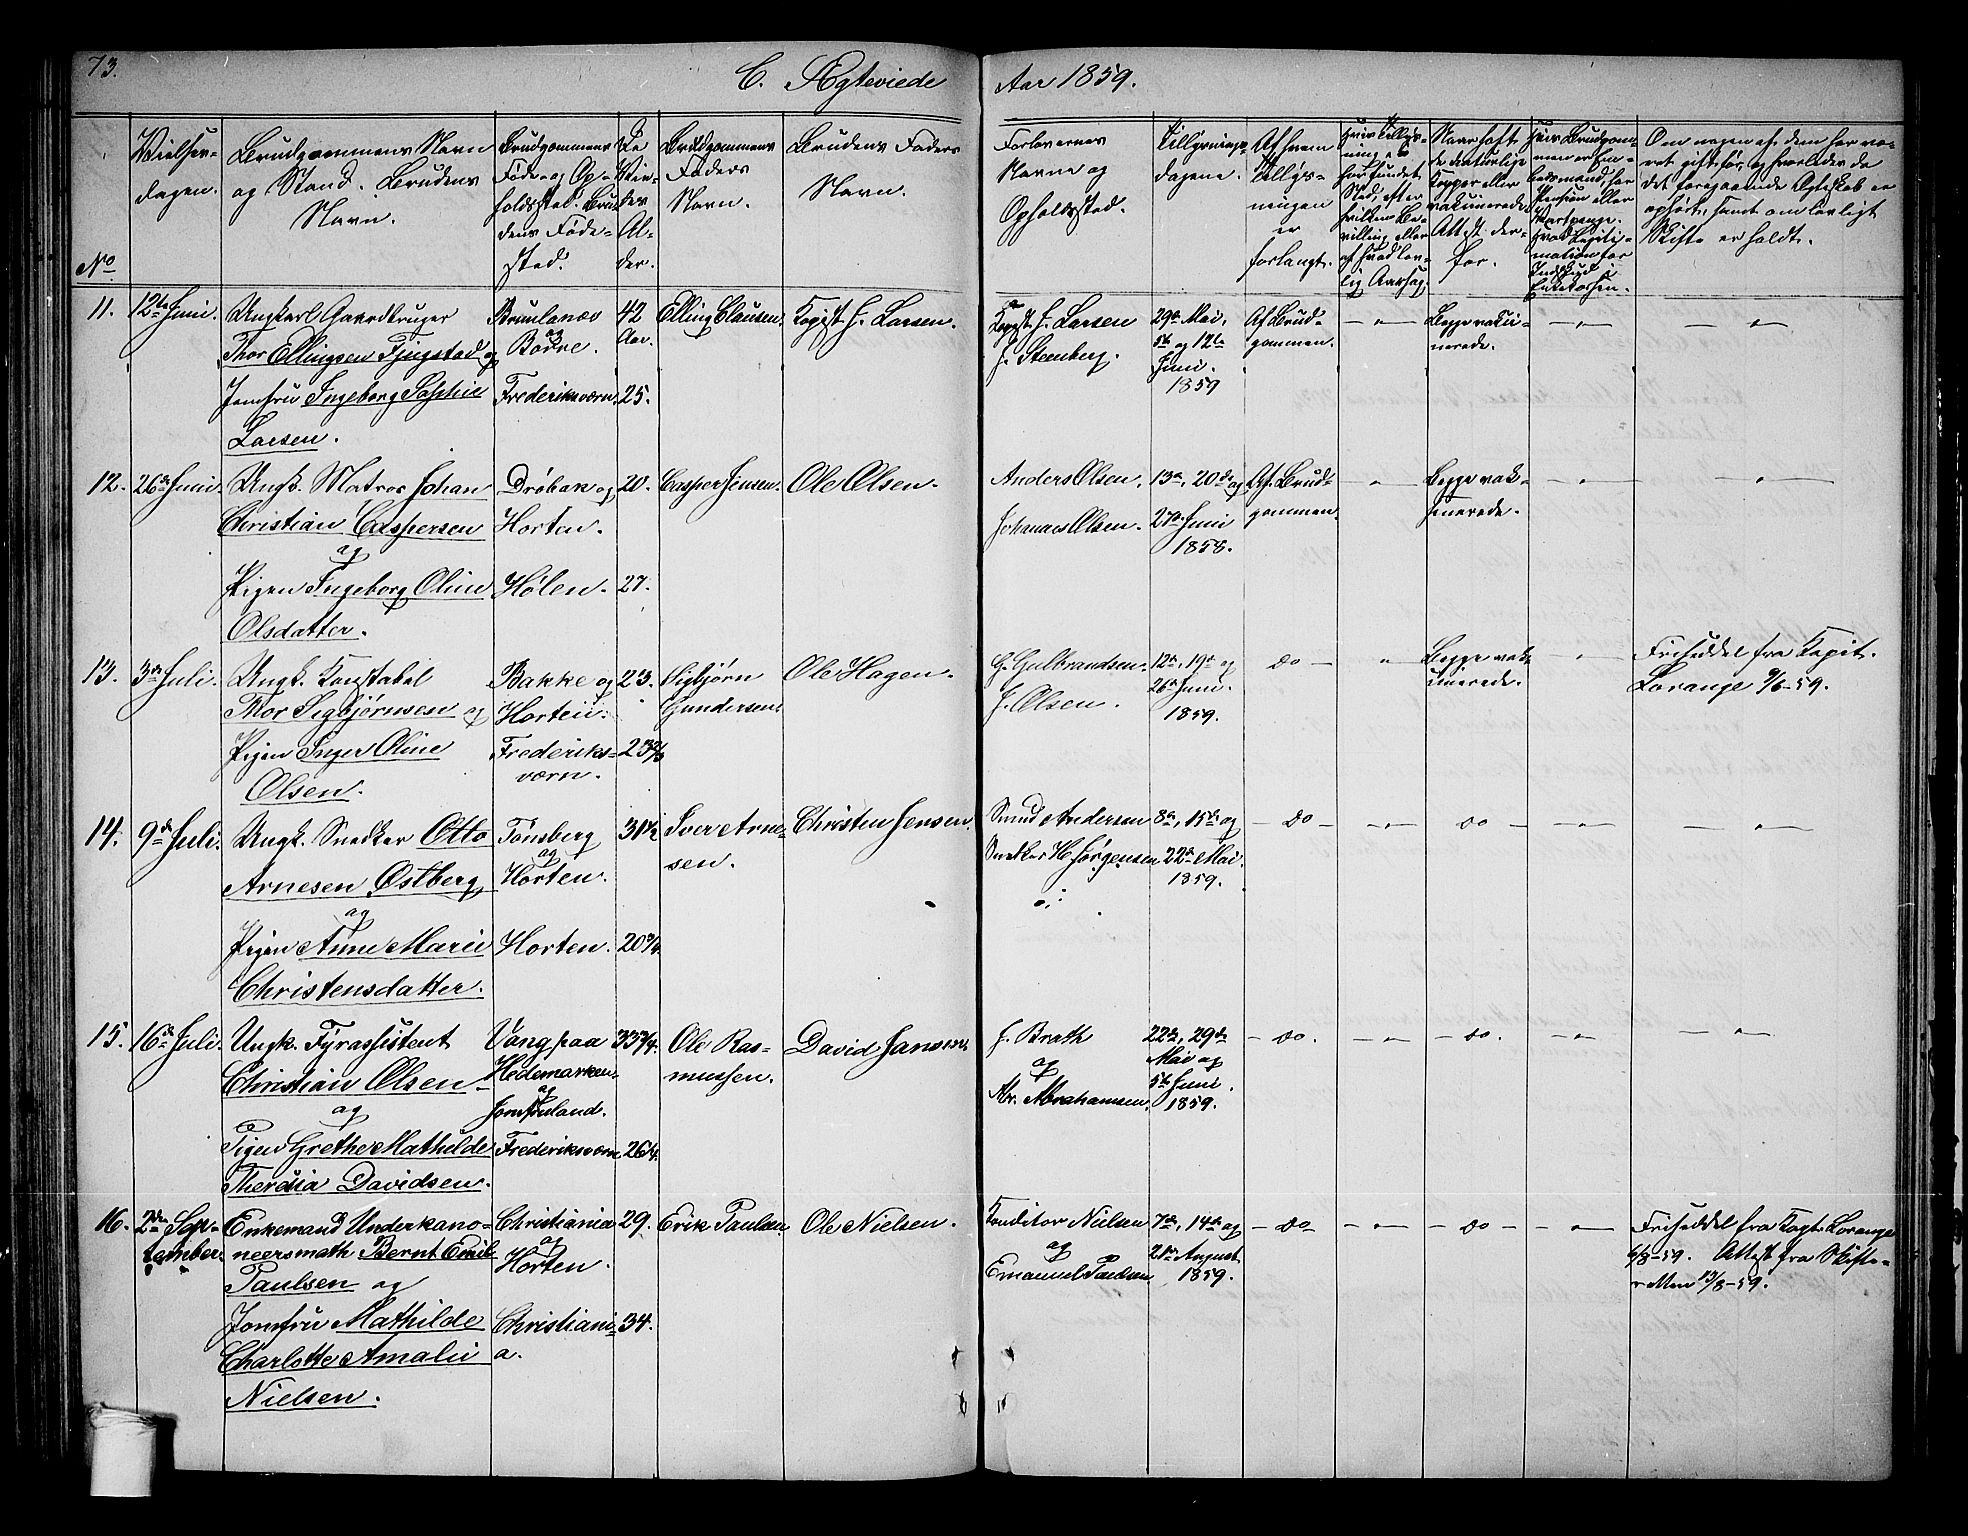 73.
C. Ægteviede
Aar 1859.
No
Vielses-
dagen.
Brudgommens Navn
og Stand. Brudens
Navn.
Brudgommens
Føde- og Op-
holdssted. Bru-
dens Føde-
sted.
De
Vie-
des
Al-
der.
Brudgommens
Faders
Navn.
Brudens Faders
Navn.
Forlovernes
Navne og
Opholdssted.
Tillysnings-
dagene.
Af hvem
tillys-
ningen
er
forlangt.
Om nogen af dem har væ-
ret gift før, og hvorledes de
det foregaaende Ægteskab er
ophørt, samt om lovligt
Skifte er holdt.
11.
12te Juni.
Ungkarl Gaardbruger
Thor Ellingsen Fjugstad og
Jomfru Ingeborg Sophie
Larsen.
Brunlanæs
og
Borre.
Frederiksværn.
42
Aar.
25.
Elling Clausen.
Kopist J. Larsen.
Kopist J. Larsen
J. Steenberg.
29de Mai,
5te og 12te
Juni.
1859
Af Brud-
gommen.
Begge vakci-
nerede.
12.
26de Juni.
Ungk. Matros Johan
Christian Caspersen
og
Pigen Ingeborg Oline
Olsdatter.
Drøbak og
Horten.
Hølen.
20.
27.
Casper Jensen.
Ole Olsen.
Anders Olsen.
Johannes Olsen.
13de, 20de og
27de Juni
1858.
Af Brud-
gommen.
Begge vak-
sinerede.
13.
3de Juli.
Ungk. Konstabel
Thor Sigbjørnsen og
Pigen Inger Oline
Olsen.
Bakke og
Horten.
Frederiks-
værn.
23.
Sigbjørn
Gundersen.
Ole Hagen.
G. Gulbrandsen.
J. Olsen.
12te, 19de og
26de Juni
1859.
do
Begge vak-
sinerede.
Friseddel fra Kapit.
Lorange 9/6-59.
14.
9de Juli.
Ungk. Snedker Otto
Arnesen Østberg
og
Pigen Anne Marie
Christensdatter.
Tønsberg
og
Horten.
Horten.
31 1/2
20 3/4.
Iver Arne-
sen.
Christen Jensen.
Smed Andersen
Snedker H. Jørgensen
8de, 15de og
22de Mai
1859.
do
do
15.
16de Juli.
Ungk. Fyrassistent
Christian Olsen
og
Pigen Grethe Mathilde
Theresia Davidsen.
Vang paa
Hedemarken
og
Jomfruland.
Frederiksværn
33 3/4.
26 1/4.
Ole Ras-
mussen.
David Jansen
J. Brath
og
Abr. Abrahamsen.
22de, 29de
Mai og
5te Juni.
1859.
do.
do.
16.
2den Sep-
tember.
Enkemand Underkano-
neersmath Bernt Emil
Paulsen og
Jomfru Mathilde
Charlotte Amalie
Nielsen.
Christiania
og
Horten.
Christiani-
a.
29.
34.
Erik Paulsen.
Ole Nielsen.
Konditor Nielsen
og
Emanuel Paulsen
7de, 14de og
21de August
1859.
do
do
Friseddel fra Kapt. Lorange
6/8-59. Attest fra Skifte-
retten 13/8-59.